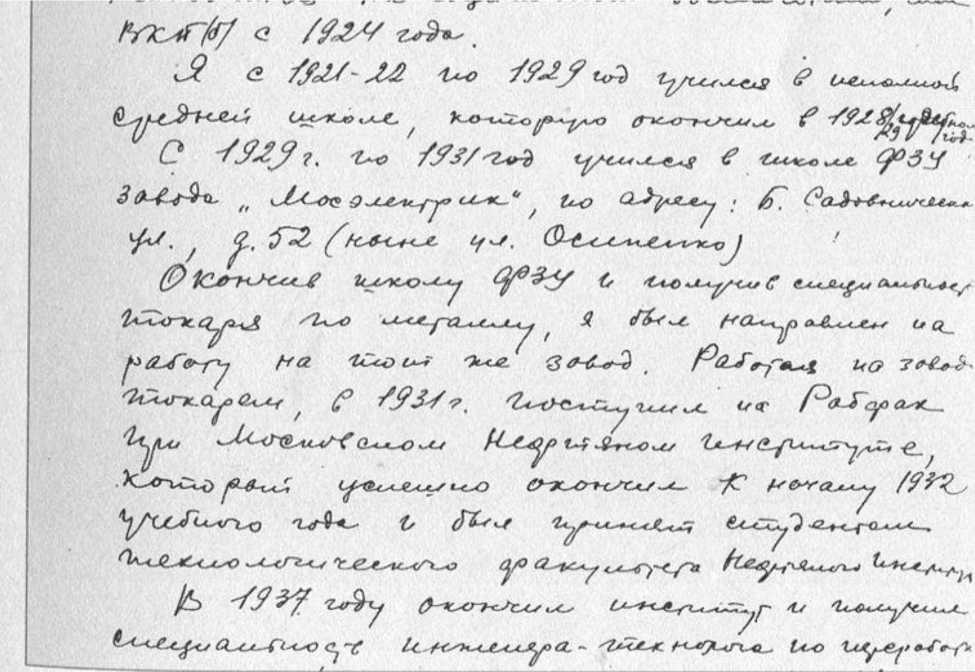 ВКП(б) с 1924 года.
Я с 1921-22 по 1929 год учился в неполной
средней школе, которую окончил в 1928/29
С 1929 г. по 1931 год учился в школе ФЗУ
завода „Мосэлектрик“, по адресу: Б. Садовническ
ул., д. 52 (ныне ул. Осипенко)
Окончив школу ФЗУ и получив специальност
токаря по металлу, я был направлен на
работу на тот же завод. Работая на завод
токарем, в 1931 г. поступил на Рабфак
при Московском Нефтяном институте,
который успешно окончил к началу 1932
учебного года и был принят студентом
технологического факультета Нефтяного Институт
В 1937 году окончил институт и получил
специальность инженера-технолога по переработ